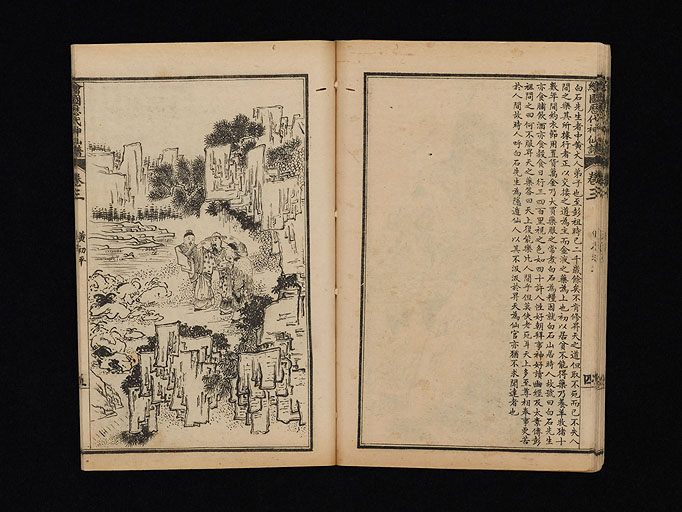 繪圖歷代神仙傳
卷三
四
白石先生者中黃大人弟子也至彭祖時已二千歲餘矣不肯修昇天之道但取不死而已不失人
間之樂其所據行者正以交接之道為主而金液之藥為上也初以居貧不能得藥乃養羊牧猪十
數年間約衣節用置貨萬金乃大買藥服之常煮白石為糧因就白石山居時人故號曰白石先生
亦食脯飲酒亦食穀食日行三四百里視之色如四十許人性好朝拜事神好讀幽經及太素傳彭
祖問之曰何不服昇天之藥答曰天上復能樂比人間乎但莫使老死耳天上多至尊相奉事更苦
於人間故時人呼白石先生為隱遁仙人以其不汲汲於昇天為仙官亦猶不求聞達者也
黃初平
繪圖歷代神仙傳
卷三